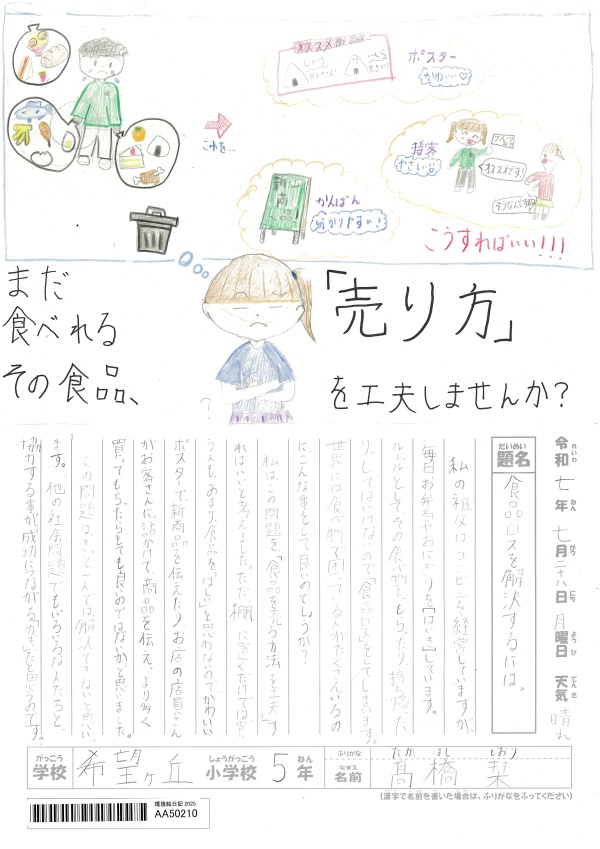 オススメ商品
しゃけ
いくら
ポスター
かわいい♡
これを…
接客
やさしい
オススメです!
そうなんですね
新商品
かんばん
分かりやすい!
こうすればいい!!!
まだ
食べれる
その食品、
「売り方」
を工夫しませんか?
?
令和七年七月二十八日月曜日 天気晴れ
れいわ ねん がつ にち ようび てんき
だいめい
題名 食品ロスを解決するには。
私の祖父はコンビニを経営していますが、
毎日お弁当やおにぎりを「はいき」しています。
ルールとしてその食べ物を、もらったり、持ち帰った
りしてはいけないので「食品ロス」をしてしまいます。
世界には食べ物で困っている人がたくさんいるの
にこんな事をして良いのでしょうか?
私は、この問題を、「食品を売る方法」を工夫す
ればいいと考えました。ただ棚に置くだけでは買
う人も、あまり、食品を「ほしい」と思わないのでかわいい
ポスターで、新商品を伝えたり、お店の店員さん
がお客さんに、話かけて、商品を伝え、より多く
買ってもらったらとても良いのではないかと思いました。
この問題はきっと一人では解決できないと思い
ます。他の社会問題でもいろいろな人たちと、
協力する事が成功につながる「カギ」だと思うのです。
がっこう しょうがっこう ねん ふりがな たか はし しおり
学校 希望ヶ丘 小学校 5年 なまえ 名前 髙橋 栞
(漢字で名前を書いた場合は、ふりがなをふってください)
環境絵日記2025
AA50210